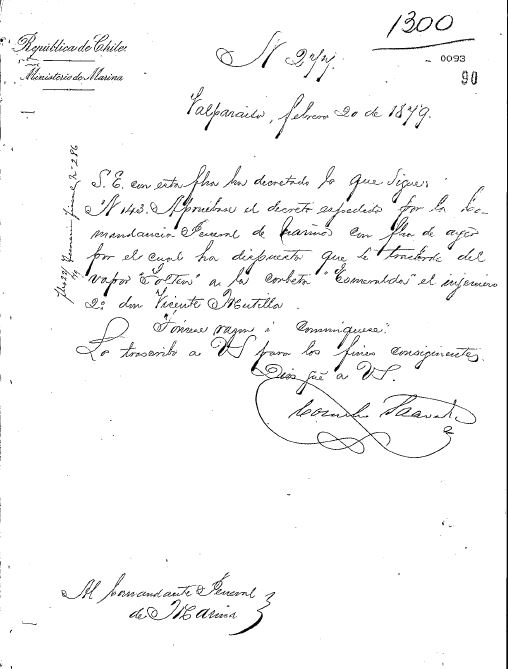 1300
República de Chile
Ministerio de Marina
N 277.
0093
90
Valparaiso, febrero 20 de 1879.
S. E. con esta fha ha decretado lo que sigue:
"N 143. Apruébase el decreto espedido por la Co-
mandancia Jeneral de Marina con fha de ayer
por el cual ha dispuesto que se trasborde del
vapor "Tolten" a la corbeta "Esmeralda" el injeniero
2º don Vicente Mutilla.
Tómese razon i comuníquese."
Lo trascribo a VS para los fines consiguientes.
Dios gue a VS.
Cornelio Saavedra
Al Comandante Jeneral
de Marina